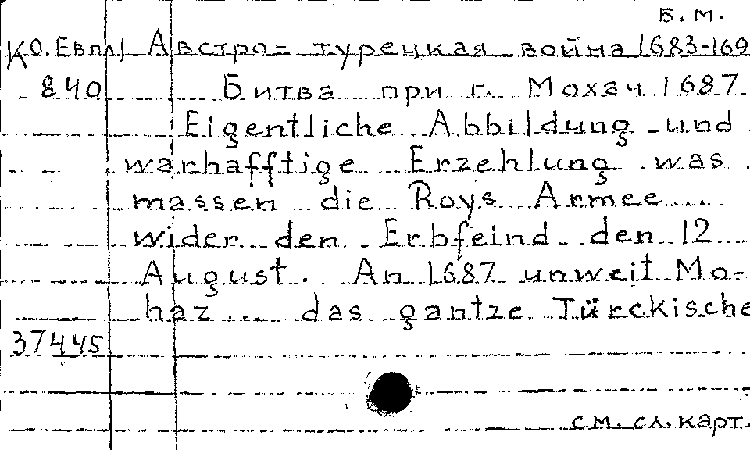 Б. М.
КО. Евпл Австро-турецкая война 1683-169
840 Битва при г. Мохач 1687
Eigentliche Abbildung und
warhafftige Erzehlung was
massen die Roys Armee ...
wider den Erbfeind den 12
August. An 1687 unweit Mo-
haz ... das gantze Türckische
37445
см. сл. карт.